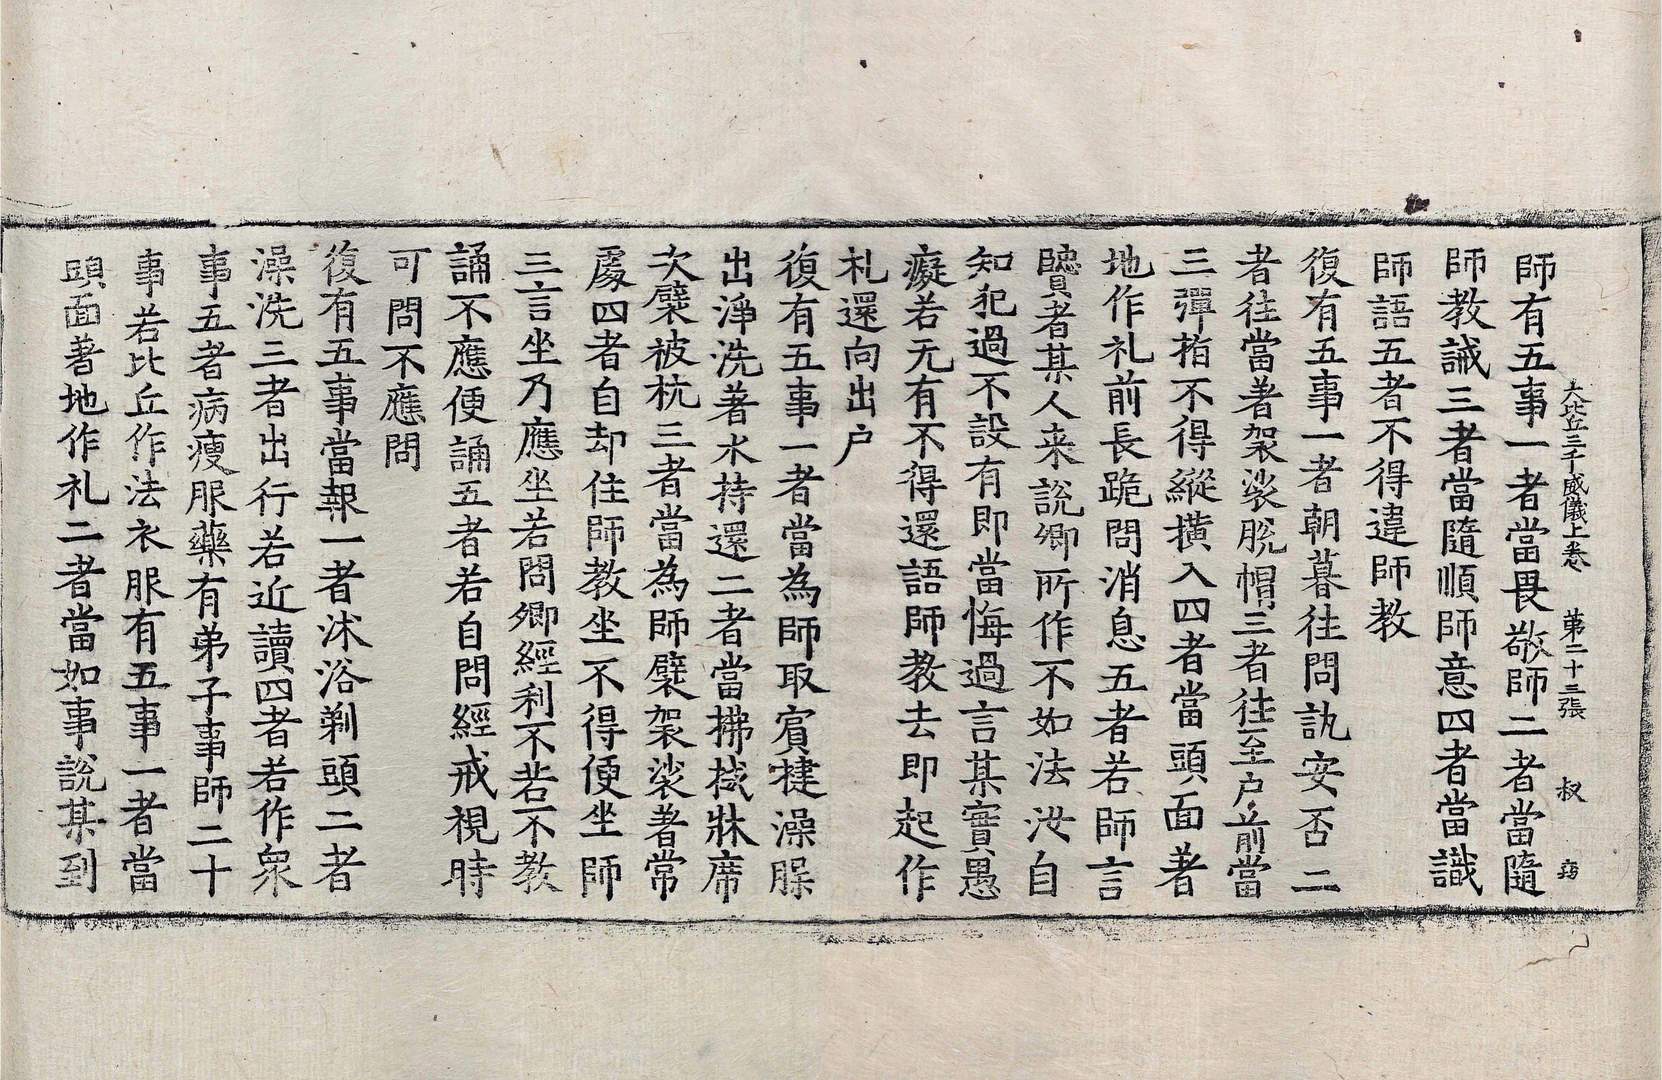 大比丘三千威儀上卷　第二十三張　叔
師有五事一者當畏敬師二者當隨
師教誡三者當隨順師意四者當識
師語五者不得違師教
復有五事一者朝暮往問訊安否二
者往當著袈裟脫帽三者往至户前當
三彈指不得縱橫入四者當頭面著
地作礼前長跪問消息五者若師言
賢者某人来說卿所作不如法汝自
知犯過不設有即當悔過言某實愚
癡若无有不得還語師教去即起作
礼還向出户
復有五事一者當為師取賓揵澡䐊
出淨洗著水持還二者當拂拭牀席
次襞被枕三者當為師襞袈裟著常
處四者自却住師教坐不得便坐師
三言坐乃應坐若問卿經利不若不教
誦不應便誦五者若自問經戒視時
可問不應問
復有五事當報一者沐浴剃頭二者
澡洗三者出行若近讀四者若作衆
事五者病瘦服藥有弟子事師二十
事若比丘作法衣服有五事一者當
頭面著地作礼二者當如事說某到